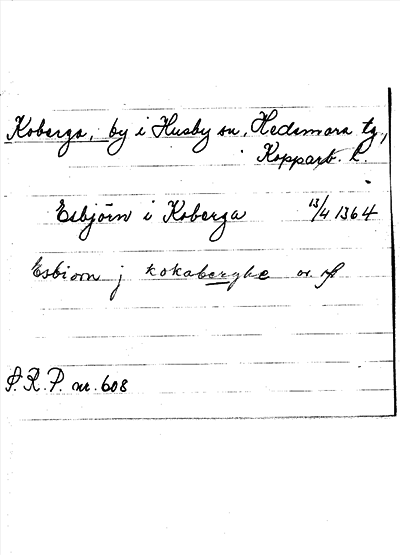 Koberga, by i Husby sn, Hedemora tg,
Kopparb. l.
Esbjörn i Koberga 13/4 1364
Esbiorn j kokaberghe or. pp
S.R.P. nr. 608